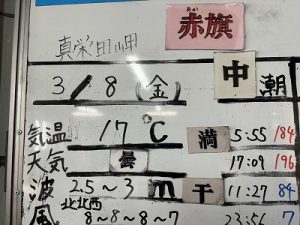 あか
赤旗
真栄田岬
3/8(金) 中潮
気温 17℃ 満 5:55 184
天気 曇 17:09 196
波 2.5~3m 干 11:27 84
風 北北西 8~8~8~7 23:56 7